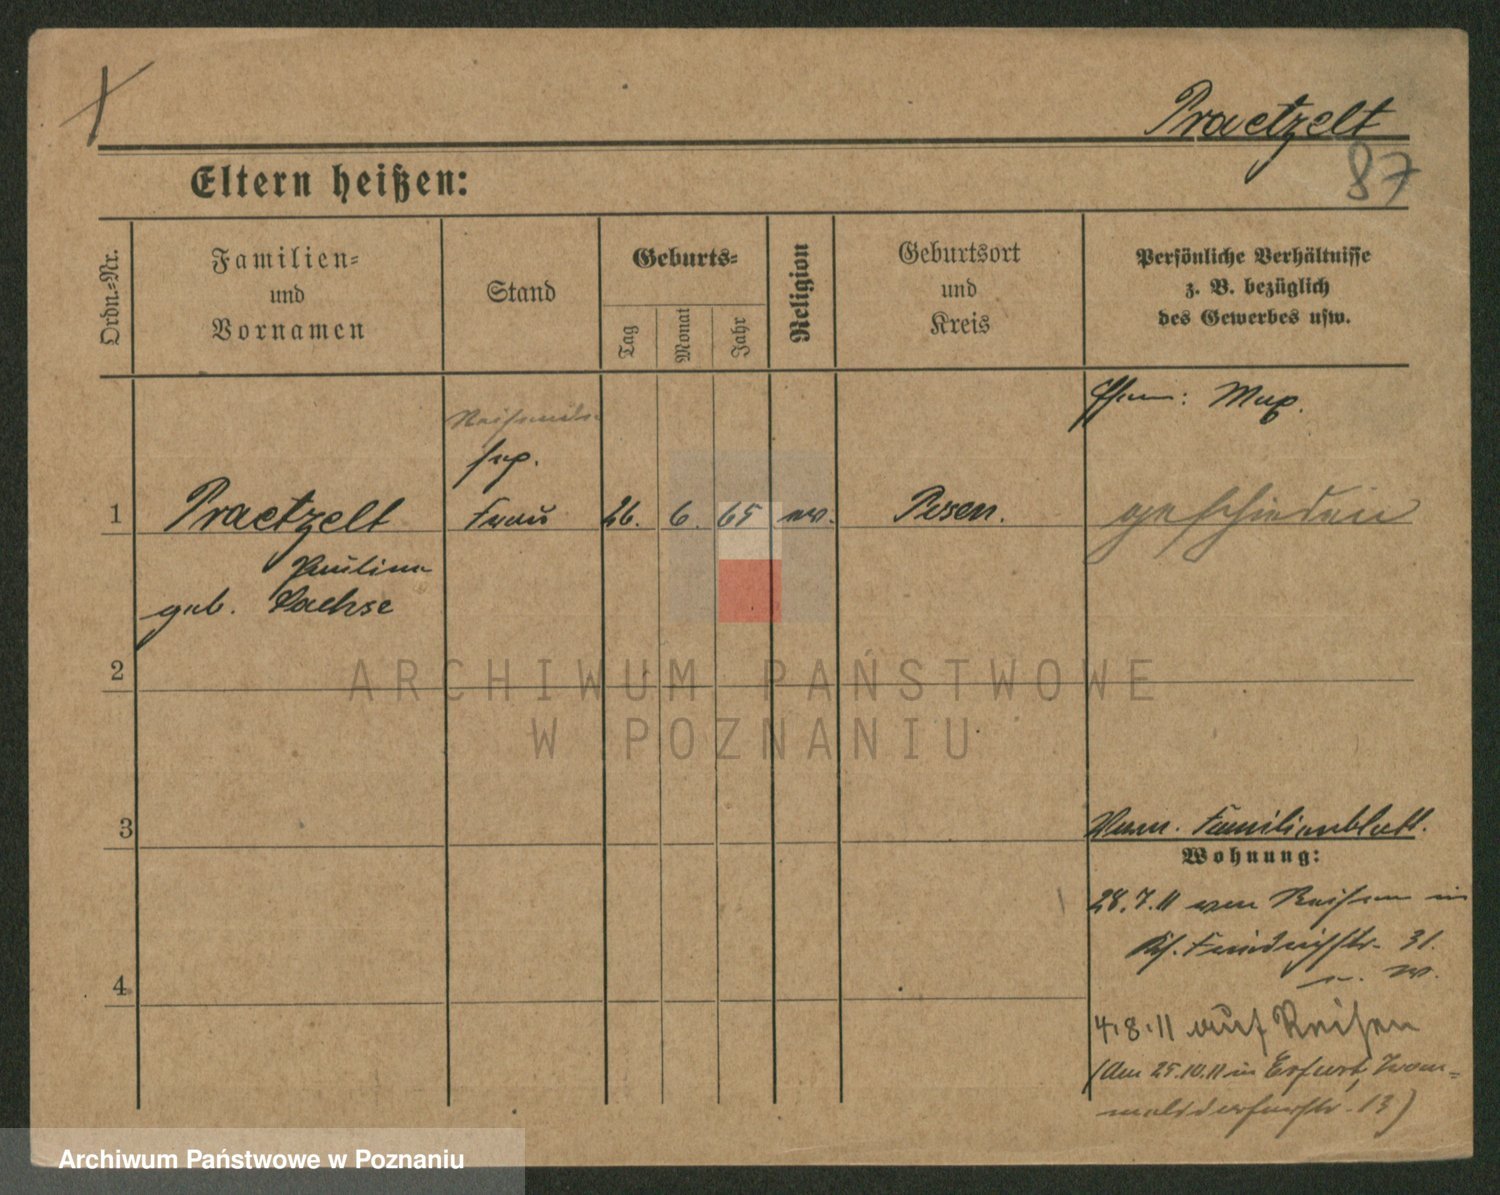 Praetzelt
87
Eltern heißen:
Ordn.-Nr.
Familien-
und
Vornamen
Stand
Geburts-
Tag
Monat
Jahr
Religion
Geburtsort
und
Kreis
Persönliche Verhältnisse
z. B. bezüglich
des Gewerbes usw.
Ehem: Max.
sep.
1 Praetzelt Frau 26. 6. 65 ev. Posen. geschieden
Pauline
geb. Sachse
2
3
Vorm. Familienblatt.
Wohnung:
28.7.11 von Reisen in
Friedrichstr. 31.
4
4.8.11 auf Reisen
(Am 25.10.11 in Erfurt, Trom-
melsdorfurstr. 13)
ARCHIWUM PAŃSTWOWE
W POZNANIU
Archiwum Państwowe w Poznaniu